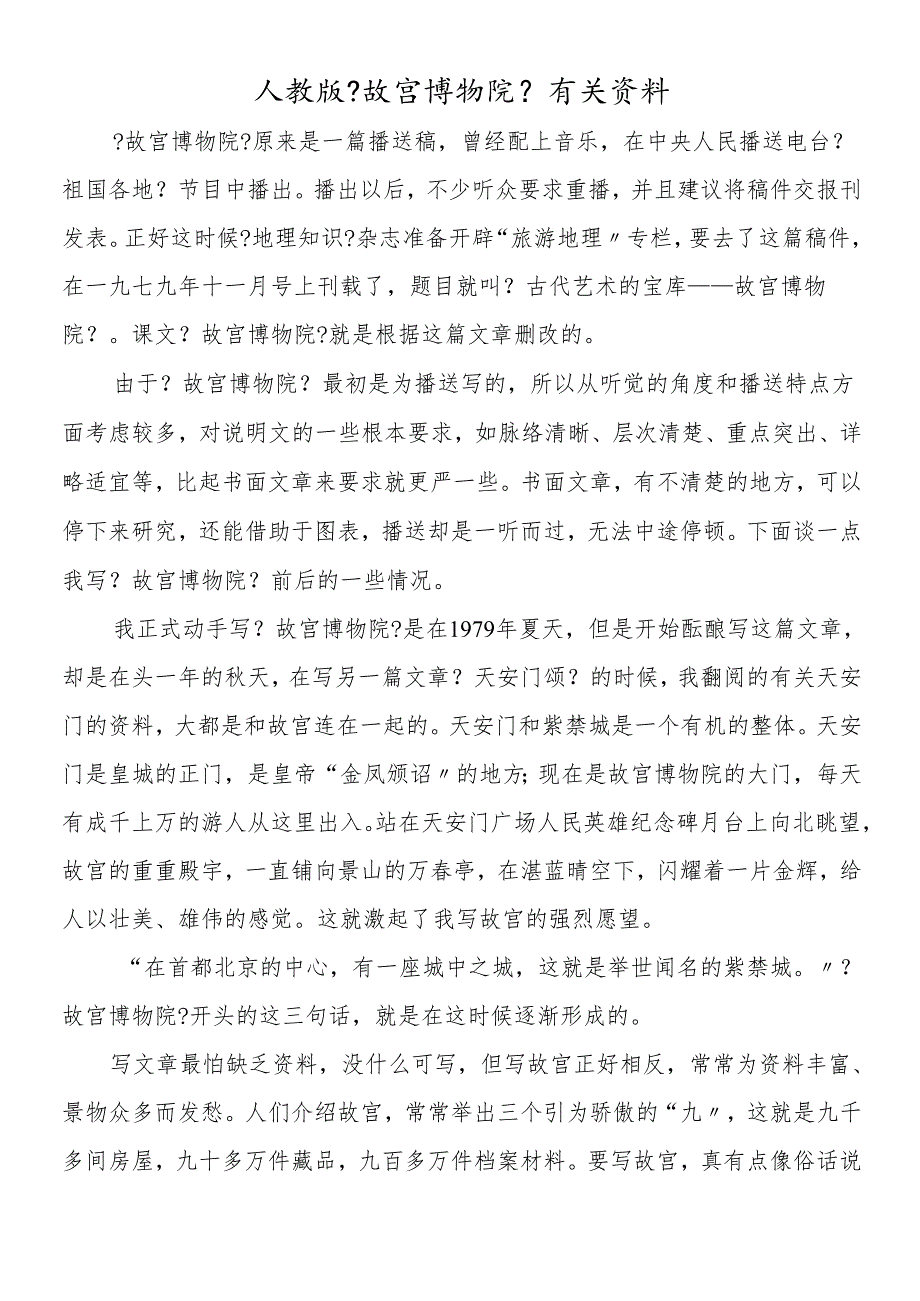 人教版?故宫博物院？有关资料
?故宫博物院?原来是一篇播送稿，曾经配上音乐，在中央人民播送电台？
祖国各地？节目中播出。播出以后，不少听众要求重播，并且建议将稿件交报刊
发表。正好这时候?地理知识?杂志准备开辟“旅游地理〃专栏，要去了这篇稿件，
在一九七九年十一月号上刊载了，题目就叫？古代艺术的宝库——故宫博物
院？。课文？故宫博物院?就是根据这篇文章删改的。
由于？故宫博物院？最初是为播送写的，所以从听觉的角度和播送特点方
面考虑较多，对说明文的一些根本要求，如脉络清晰、层次清楚、重点突出、详
略适宜等，比起书面文章来要求就更严一些。书面文章，有不清楚的地方，可以
停下来研究，还能借助于图表，播送却是一听而过，无法中途停顿。下面谈一点
我写？故宫博物院？前后的一些情况。
我正式动手写？故宫博物院?是在1979年夏天，但是开始酝酿写这篇文章，
却是在头一年的秋天，在写另一篇文章？天安门颂？的时候，我翻阅的有关天安
门的资料，大都是和故宫连在一起的。天安门和紫禁城是一个有机的整体。天安
门是皇城的正门，是皇帝“金凤颁诏〃的地方；现在是故宫博物院的大门，每天
有成千上万的游人从这里出入。站在天安门广场人民英雄纪念碑月台上向北眺望，
故宫的重重殿宇，一直铺向景山的万春亭，在湛蓝晴空下，闪耀着一片金辉，给
人以壮美、雄伟的感觉。这就激起了我写故宫的强烈愿望。
“在首都北京的中心，有一座城中之城，这就是举世闻名的紫禁城。〃？
故宫博物院?开头的这三句话，就是在这时候逐渐形成的。
写文章最怕缺乏资料，没什么可写，但写故宫正好相反，常常为资料丰富、
景物众多而发愁。人们介绍故宫，常常举出三个引为骄傲的“九〃，这就是九千
多间房屋，九十多万件藏品，九百多万件档案材料。要写故宫，真有点像俗话说